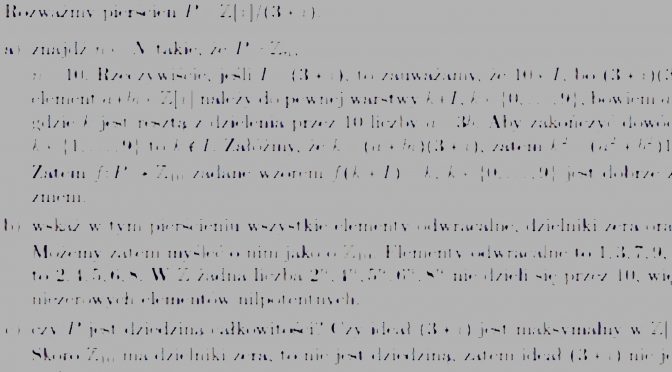 Rozważmy pierścień P = Z[i]/(3 + i).
a) znajdź n ∈ N takie, że P ≅ Zₙ,
n = 10. Rzeczywiście, jeśli I = (3 + i), to zauważamy, że 10 ∈ I, bo (3 + i)(3
element a + bi ∈ Z[i] należy do pewnej warstwy k + I, k ∈ {0, ..., 9}, bowiem
gdzie k jest resztą z dzielenia przez 10 liczby a − 3b. Aby zakończyć dowód
k ∈ {1, ..., 9} to k ∉ I. Załóżmy, że k = (a + bi)(3 + i), zatem k² = (a² + b²)1
Zatem f: P → Z₁₀ zadane wzorem f(k + I) = k, k ∈ {0, ..., 9} jest dobrze
zmem.
b) wskaż w tym pierścieniu wszystkie elementy odwracalne, dzielniki zera ora
Możemy zatem myśleć o nim jako o Z₁₀. Elementy odwracalne to 1, 3, 7, 9,
to 2, 4, 5, 6, 8. W Z żadna liczba 2ⁿ, 4ⁿ, 5ⁿ, 6ⁿ, 8ⁿ nie dzieli się przez 10, wię
niezerowych elementów nilpotentnych.
c) czy P jest dziedziną całkowitości? Czy ideał (3 + i) jest maksymalny w Z[
Skoro Z₁₀ ma dzielniki zera, to nie jest dziedziną, zatem ideał (3 + i) nie je